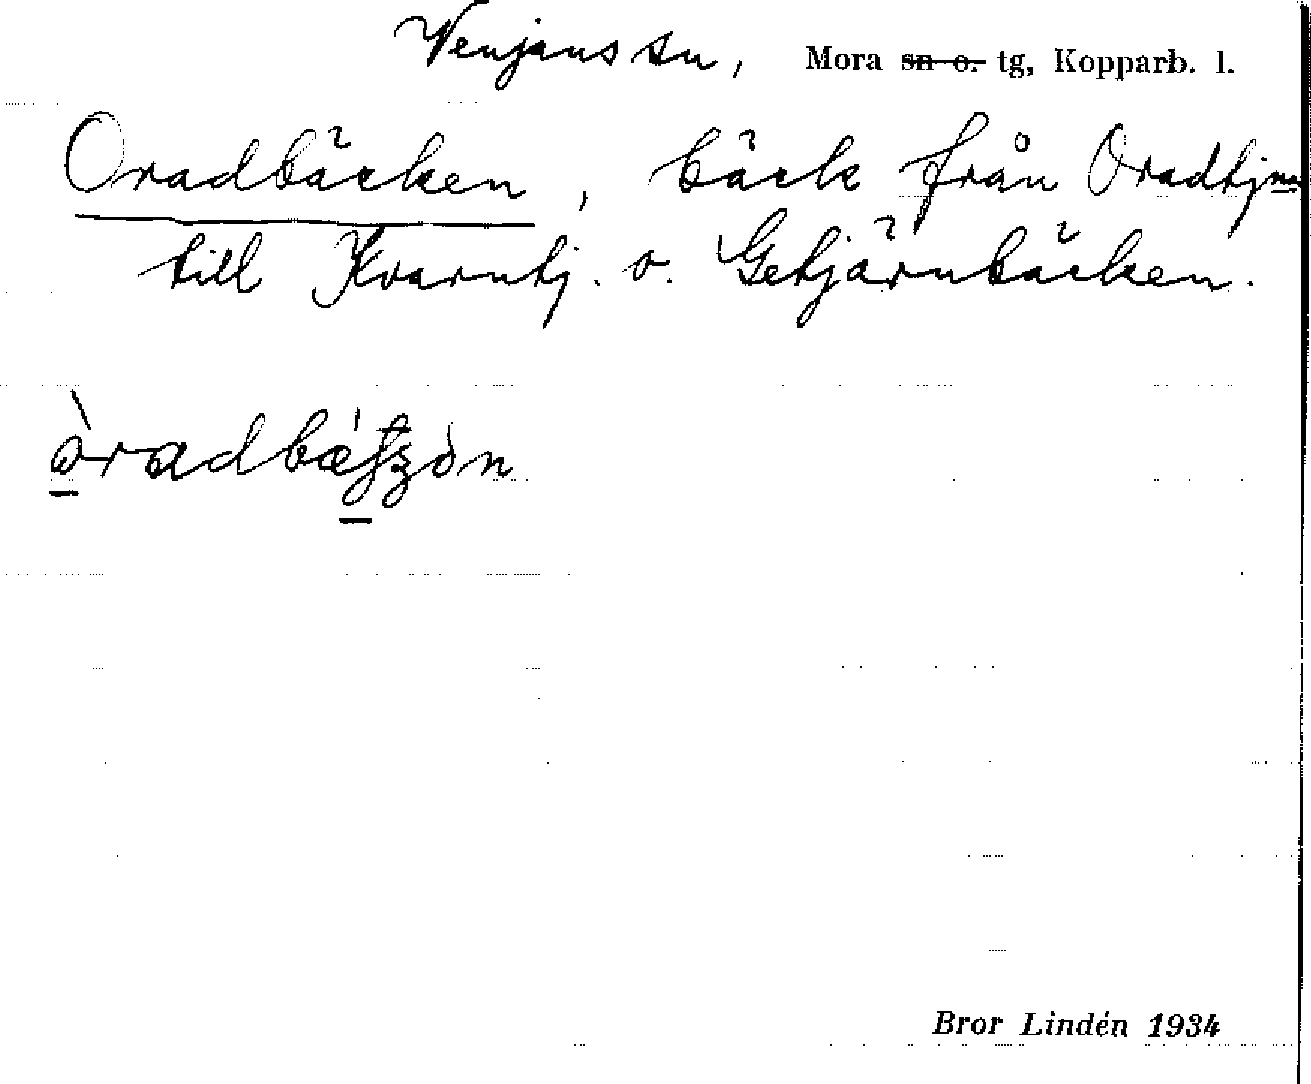 Venjans sn, Mora ~~sn o.~~ tg, Kopparb. l.
Oradbäcken, bäck från Oradtjn
till Kvarntj. o. Getjärnbäcken.
Bror Lindén 1934